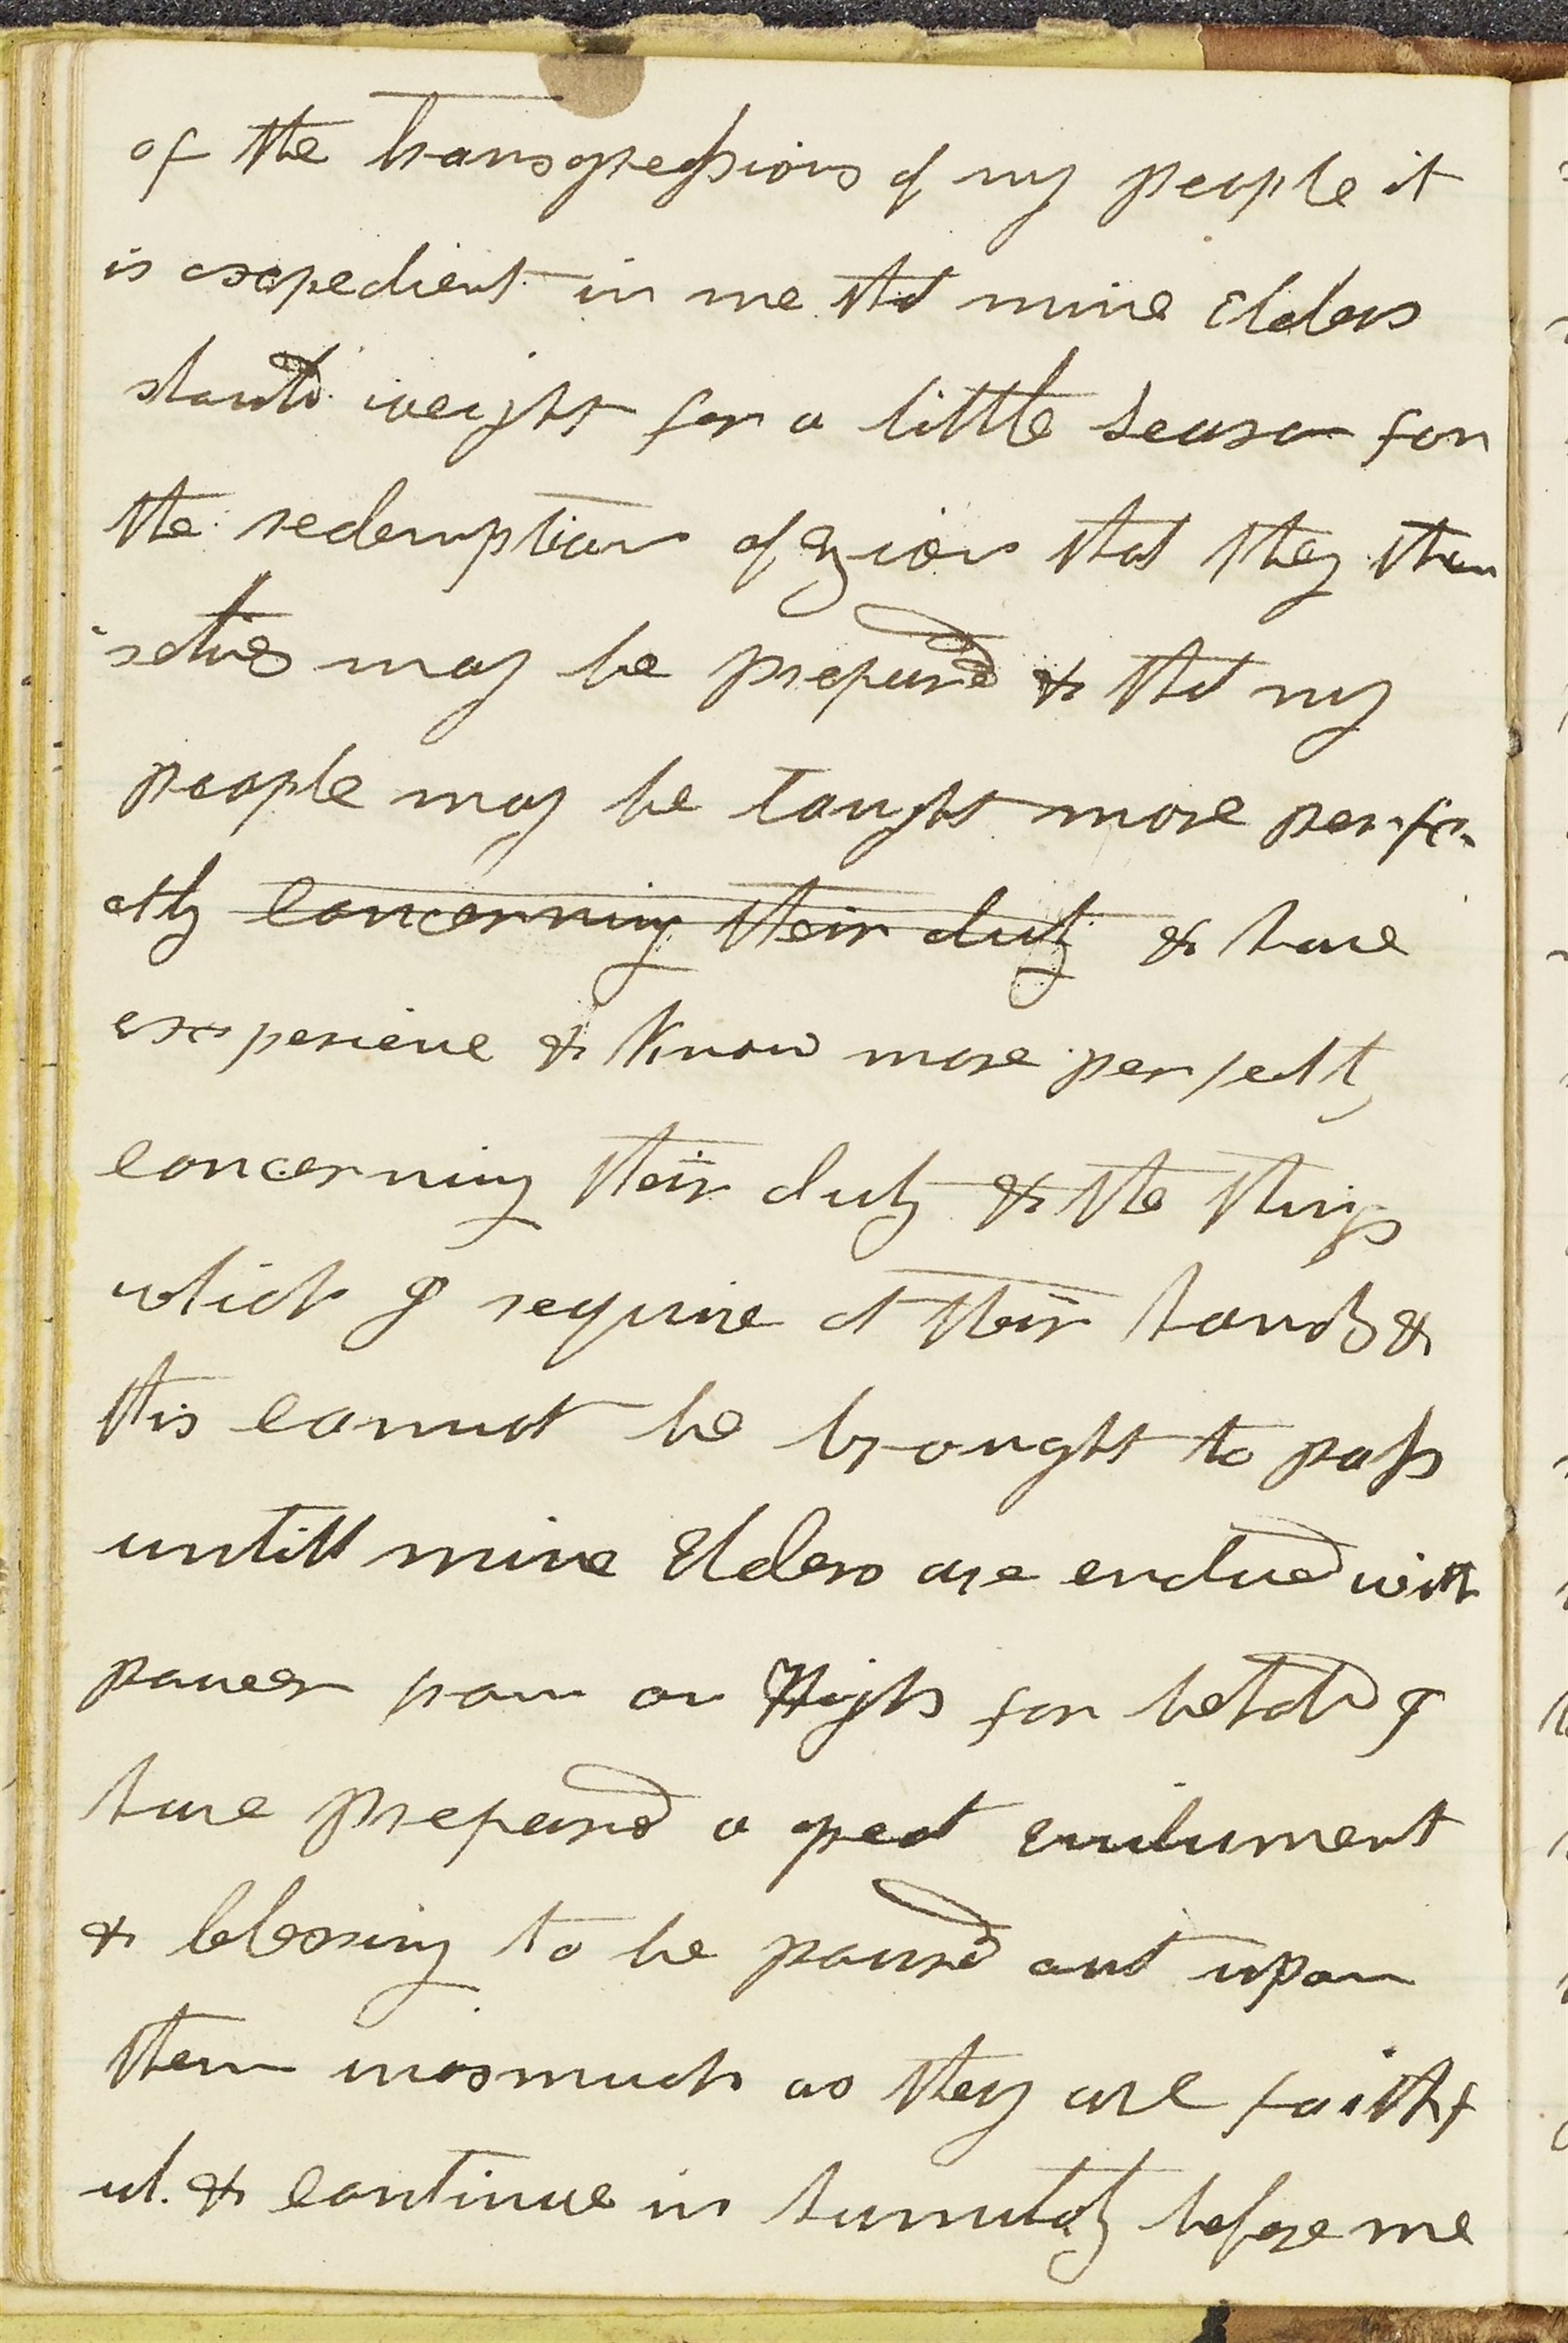 of the transgressions of my people it
is expedient in me that mine Elders
should weight for a little season for
the redemption of zion that they them
selves may be prepared & that my
people may be taught more perfe
ctly ~~concerning their duty~~ & have
experience & know more perfectly
concerning their duty & the things
which I require at their hands &
this cannot be brought to pass
untill mine Elders are endued with
power from on High for behold I
have prepared a great enduement
& blessing to be poured out upon
them inasmuch as they are faithf
ul. & continue in humility before me